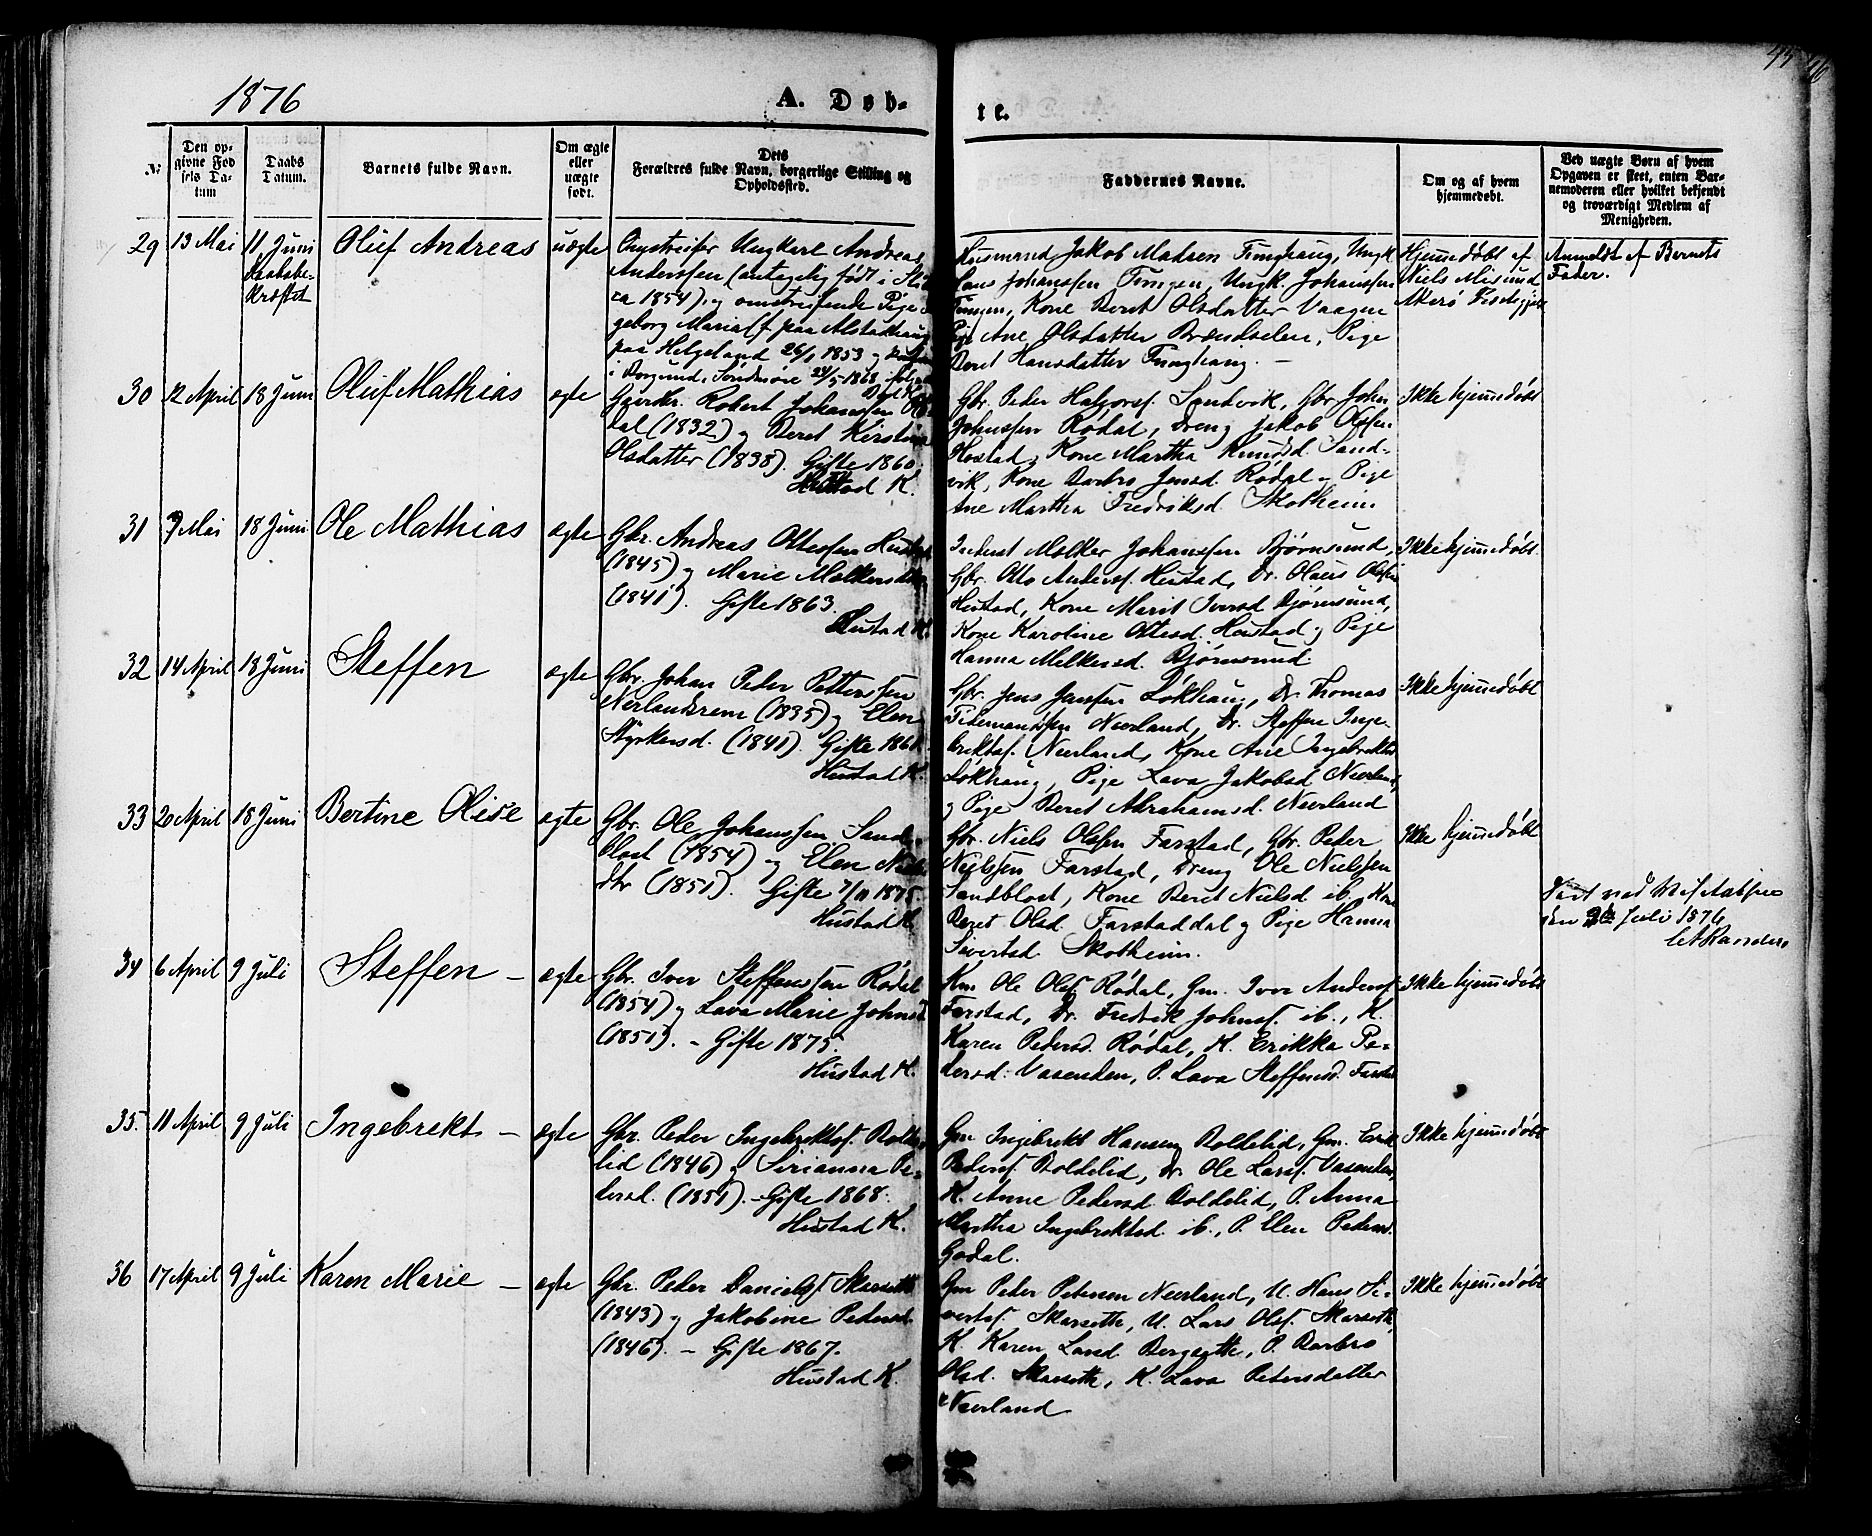 1876
A. Døb-
te.
№
Den op-
givne Fød
sels Da-
tum
Daabs
Datum.
Barnets fulde Navn.
Om ægte
eller
uægte
født.
Dets
Forældres fulde Navn, borgerlige Stilling og
Opholdssted.
Faddernes Navne.
Om og af hvem
hjemmedøbt.
Ved uægte Børn af hvem
Opgaven er skeet, enten Bar-
nemoderen eller hvilket bekjendt
og troværdigt Medlem af
Menigheden.
29 13 Mai 11 Juni Daabsbe- kræftet
Oluf Andreas uægte
Omstreifer Ungkarl Andreas
Anderssen (antagelig født i
ca 1854) og omstreifende Pige
geborg Maria (f. paa Alstadhaug
paa Helgeland 26/1 1853 og
i Borgund, Søndmøre 24/5 1868
Husmand Jakob Madsen Tunghaug, Ungk.
Hans Johanssen Tungen, Ungk. Johanssen
Tungen, Kone Beret Olsdatter Vaagne
Pige Ane Olsdatter Brændselen, Pige
Beret Hansdatter Tunghaug. –
Hjemmedøbt af
Niels Misund
Anmeldt af Barnets
Fader.
30 12 April 18 Juni Oluf Mathias ægte
Robert Johanssen Rø-
dal (1832) og Beret Kirstine
Olsdatter (1838). Gifte 1860.
Hustad K.
Gbr. Peder Halvorsf. Sandvik, Gbr. John
Johnssen Rødal, Dreng Jakob Olssen
Hostad, Kone Martha Knudsd. Sand-
vik, Kone Barbro Jensd. Rødal og Pige
Ane Martha Fredriksd. Skotheim
Ikke hjemmedøbt
31 7 Mai 18 Juni Ole Mathias ægte
Gbr. Andreas Ottessen Hustad
(1845) og Marie Melkersdatter
(1841). Gifte 1863.
Hustad K.
Inderst Melker Johanssen Bjørnsund,
Gbr. Otto Andersf. Hustad, Dr. Olaus Olssen
Hustad, Kone Marit Iversd Bjørnsund,
Kone Karoline Ottesd. Hustad og Pige
Hanna Melkersd. Bjørnsund.
Ikke hjemmedøbt
32 14 April 18 Juni Steffen ægte
Gbr. Johan Peder Petterssen
Nerlandsrem (1835) og Elen
Styrkersd. (1841). Gifte 1861.
Hustad K.
Gbr. Jens Janssen Løkhaug, Dr. Thomas
Tidemandsen Neerland, Dr. Steffen Inge-
briktsf. Neerland, Kone Ane Ingebriktsd
Løkhaug, Pige Lava Jakobsd Neerland,
og Pige Beret Abrahamsd. Neerland
Ikke hjemmedøbt
33 20 April 18 Juni Bertine Olise ægte
Gbr. Ole Johanssen Sand-
blost (1854) og Elen Niels-
dtr (1851). Gifte 7/11 1875.
Hustad K.
Gbr. Niels Olssen Farstad, Gbr. Peder
Nielssen Farstad, Dreng Ole Nielssen
Sandblost, Kone Beret Nielsd ib., Kone
Beret Olsd. Farstaddal og Pige Hanna
Sivertsd Skotheim.
Ikke hjemmedøbt
den Juli 1876
34 6 April 9 Juli Steffen – ægte
Gbr. Iver Steffenssen Rødal
(1854) og Lava Marie Johnsd.
(1851). – Gifte 1875.
Hustad K.
Km. Ole Olsf. Rødal, Gm. Iver Andersf
Farstad, Dr. Fredrik Johnsf. ib., K.
Karen Pedersd. Rødal, K. Erikka Pe-
dersd. Vasenden, P. Lava Steffensd. Farstad
Ikke hjemmedøbt
35 11 April 9 Juli Ingebrekt – ægte
Gbr. Peder Ingebriktsf. Bolde-
lid (1846) og Serianna Pe-
dersd. (1851). – Gifte 1868.
Hustad K.
Gm Ingebrikt Hansen Boldelid, Gm. Erik
Pedersf. Boldelid, Dr. Ole Larsf. Vasenden,
K. Anne Pedersd Boldelid, P. Anna
Martha Ingebriktsd. ib., P. Elen Pedersd.
Godal.
Ikke hjemmedøbt
36 17 April 9 Juli Karen Marie – ægte
Gbr. Peder Danielsf. Skarseth
(1843) og Jakobine Pedersd.
(1846). – Gifte 1867.
Hustad K.
Gm Peder Petersen Neerland, U. Hans Si-
vertsf. Skarseth, U. Lars Olsf. Skarseth,
K. Karen Larsd. Bergseth, P. Barbro
Olsd. Skarseth, K. Lava Petersdatter
Neerland
Ikke hjemmedøbt